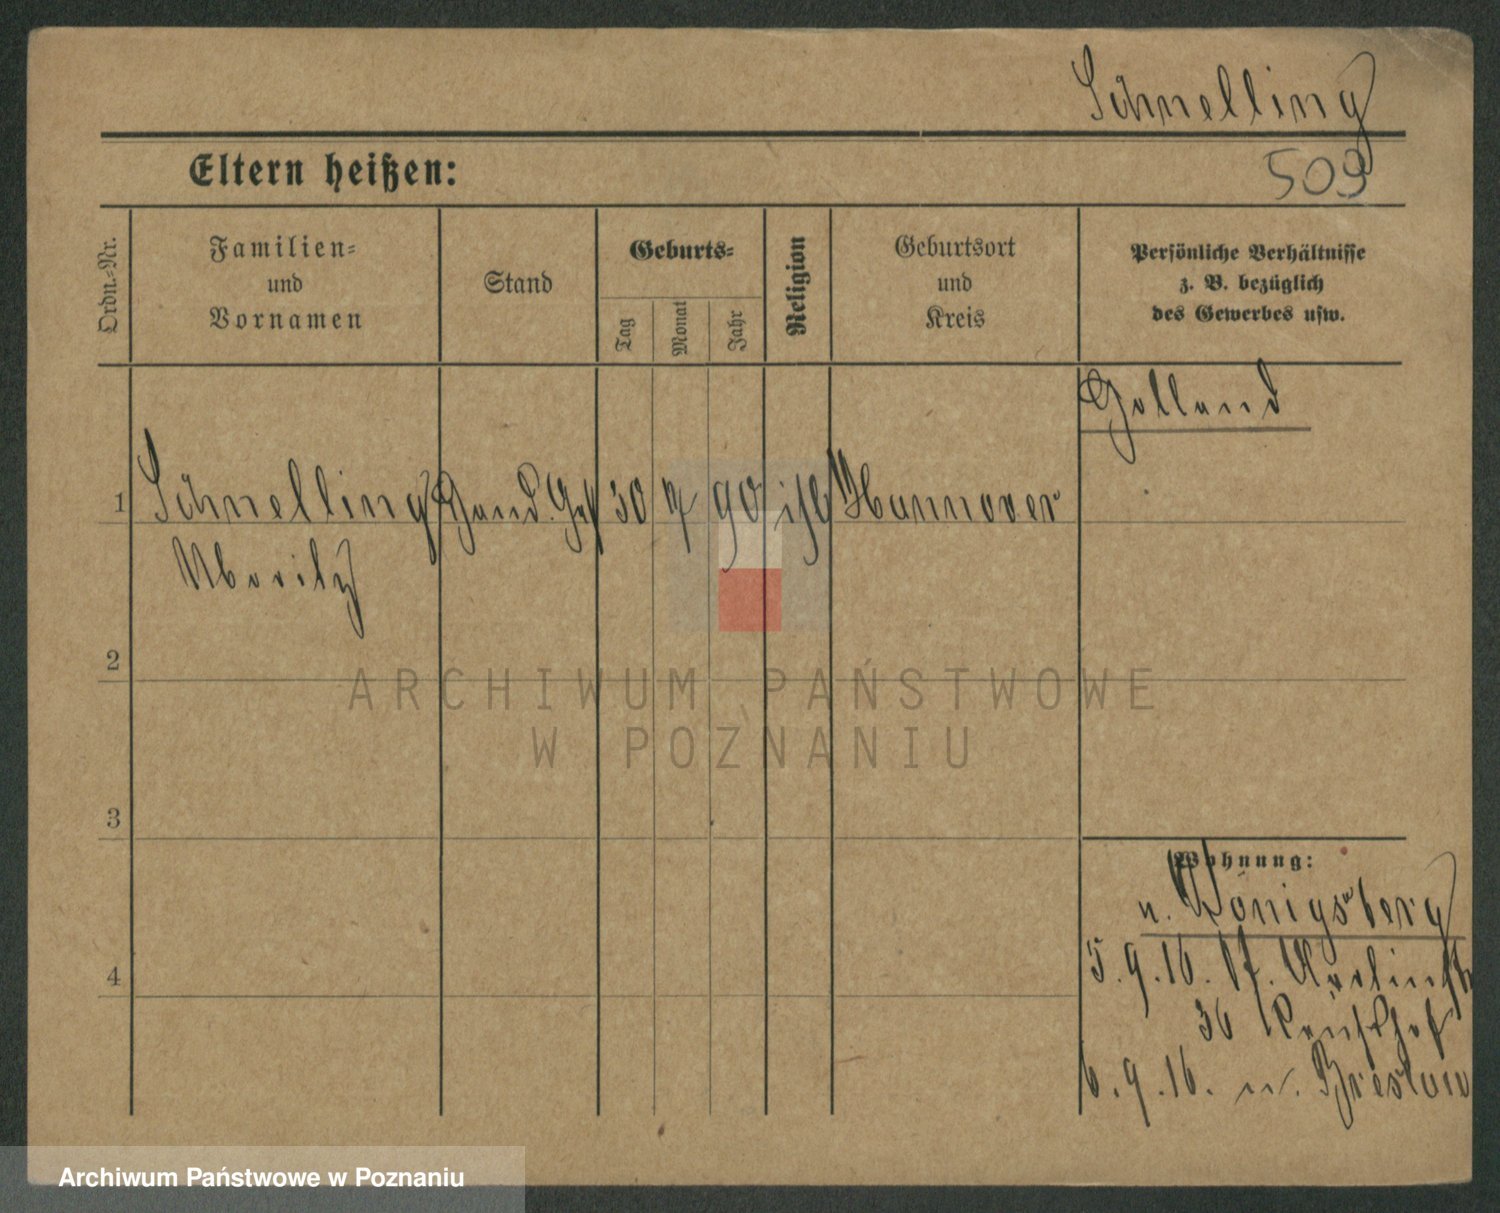 Schnelling
509
Eltern heißen:
Ordn.-Nr.
Familien-
und
Vornamen
Stand
Geburts-
Tag
Monat
Jahr
Religion
Geburtsort
und
Kreis
Persönliche Verhältnisse
z. B. bezüglich
des Gewerbes usw.
Holland
1 Schnelling Hand. Geh 30 7 90 isr Hannover
Moritz
2
3
4
ARCHIWUM PAŃSTWOWE
W POZNANIU
Wohnung:
n. Königsberg
5.9.16. Berlinstr
36
6.9.16. n. Breslau
Archiwum Państwowe w Poznaniu